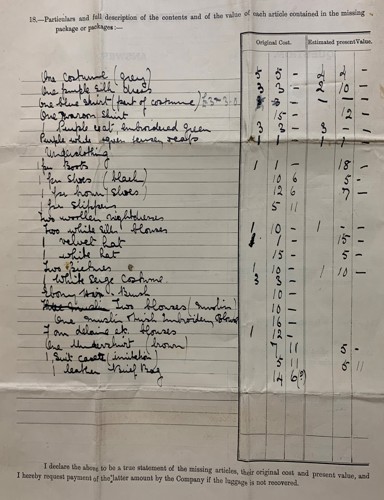 18.—Particulars and full description of the contents and of the value of each article contained in the missing
package or packages:—
Original Cost. Estimated present Value.
One costume (grey) 5 5 - 2 2 -
One purple silk dress 3 3 - 2 10 -
One blue skirt (part of costume) £3-3-0
One maroon skirt 15 - 12 -
Purple coat embroidered green 3 3 - 3 -
Purple white green
Underclothing
1 pr Boots 1 1 - 18 -
1 pr Shoes (black) 10 6 5 -
1 pr brown shoes) 12 6 7 -
1 pr slippers 5 11
Two woollen nightdresses
Two white silk blouses 1 10 - 1 - -
1 velvet hat 1 - 15 -
1 white hat 15 - 5 -
Two pictures 1 10 - 1 10 -
1 White Serge Costume 3 3 -
Ebony Brush 10 -
Two blouses (muslin) 10 -
One muslin Irish Embroidery 16 -
delaine blouses 1
One Underskirt (brown) 7 11 5 -
1 Suit case (imitation) 5 11 5 11
1 leather Brief Bag 4 6
I declare the above to be a true statement of the missing articles, their original cost and present value, and
I hereby request payment of the latter amount by the Company if the luggage is not recovered.